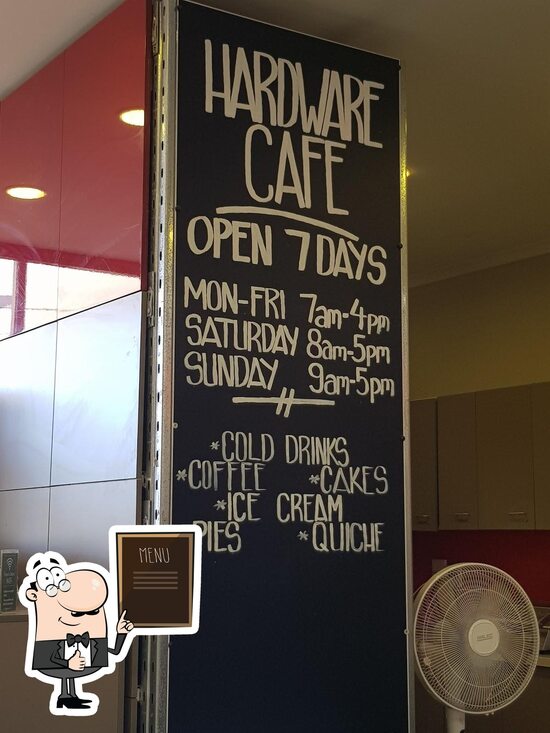 HARDWARE
CAFE
OPEN 7 DAYS
MON-FRI 7am-4pm
SATURDAY 8am-5pm
SUNDAY 9am-5pm
*COLD DRINKS
*COFFEE *CAKES
*ICE CREAM
PIES *QUICHE
MENU